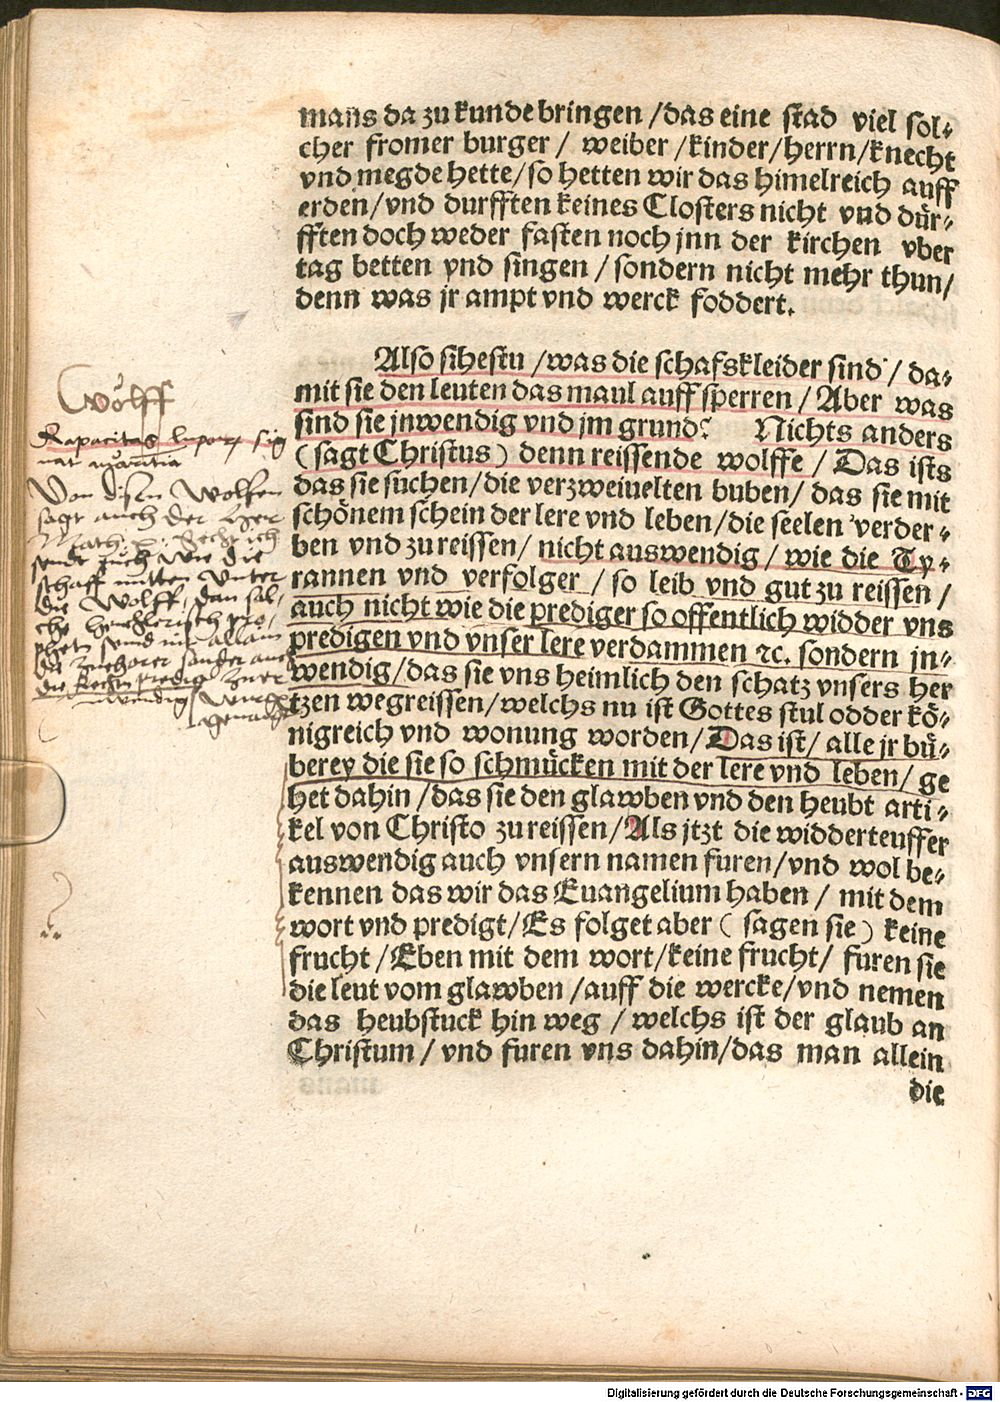 mans da zu kunde bringen /das eine stad viel sol⸗
cher fromer burger / weiber /kinder/herrn/knecht
vnd megde hette/so hetten wir das himelreich auff
erden/vnd durfften keines Closters nicht vnd dür⸗
fften doch weder fasten noch jnn der kirchen vber
tag betten vnd singen / sondern nicht mehr thun/
denn was jr ampt vnd werck foddert.
Also sihestu /was die schafskleider sind / da⸗
mit sie den leuten das maul auff sperren / Aber was
sind sie jnwendig vnd jm grund? Nichts anders
(sagt Christus) denn reissende wolffe / Das ists
das sie suchen/die verzweiuelten buben/ das sie mit
schönem schein der lere vnd leben/die seelen verder⸗
ben vnd zu reissen/ nicht auswendig/ wie die Ty⸗
rannen vnd verfolger / so leib vnd gut zu reissen /
auch nicht wie die prediger so offentlich widder vns
predigen vnd vnser lere verdammen ꝛc. sondern jn⸗
wendig/das sie vns heimlich den schatz vnsers her
tzen wegreissen/welchs nu ist Gottes stul odder kö⸗
nigreich vnd wonung worden/Das ist/ alle jr bü⸗
berey die sie so schmücken mit der lere vnd leben/ ge
het dahin /das sie den glawben vnd den heubt arti⸗
kel von Christo zu reissen/Als jtzt die widderteuffer
auswendig auch vnsern namen furen/vnd wol be⸗
kennen das wir das Euangelium haben / mit dem
wort vnd predigt/Es folget aber ( sagen sie) keine
frucht /Eben mit dem wort/keine frucht/ furen sie
die leut vom glawben /auff die wercke/vnd nemen
das heubstuck hin weg / welchs ist der glaub an
Christum / vnd furen vns dahin/das man allein
die
Wolff
Rapacitas lupor
Von disen Wolfen
sagt auch der Her
Math. x. Sech ich
sende euch wie die
schaff mitten vnter
die Wolff, dan sol⸗
Digitalisierung gefördert durch die Deutsche Forschungsgemeinschaft - DFG